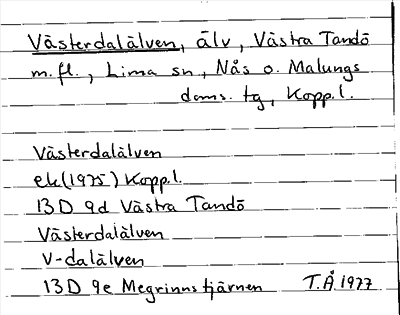 Västerdalälven, älv, Västra Tandö
m.fl., Lima sn, Nås o. Malungs
doms. tg, Kopp.l.
Västerdalälven
ek(1975) Kopp.l.
13D 9d Västra Tandö
Västerdalälven
V-dalälven
13D 9e Megrinnstjärnen T.Å 1977